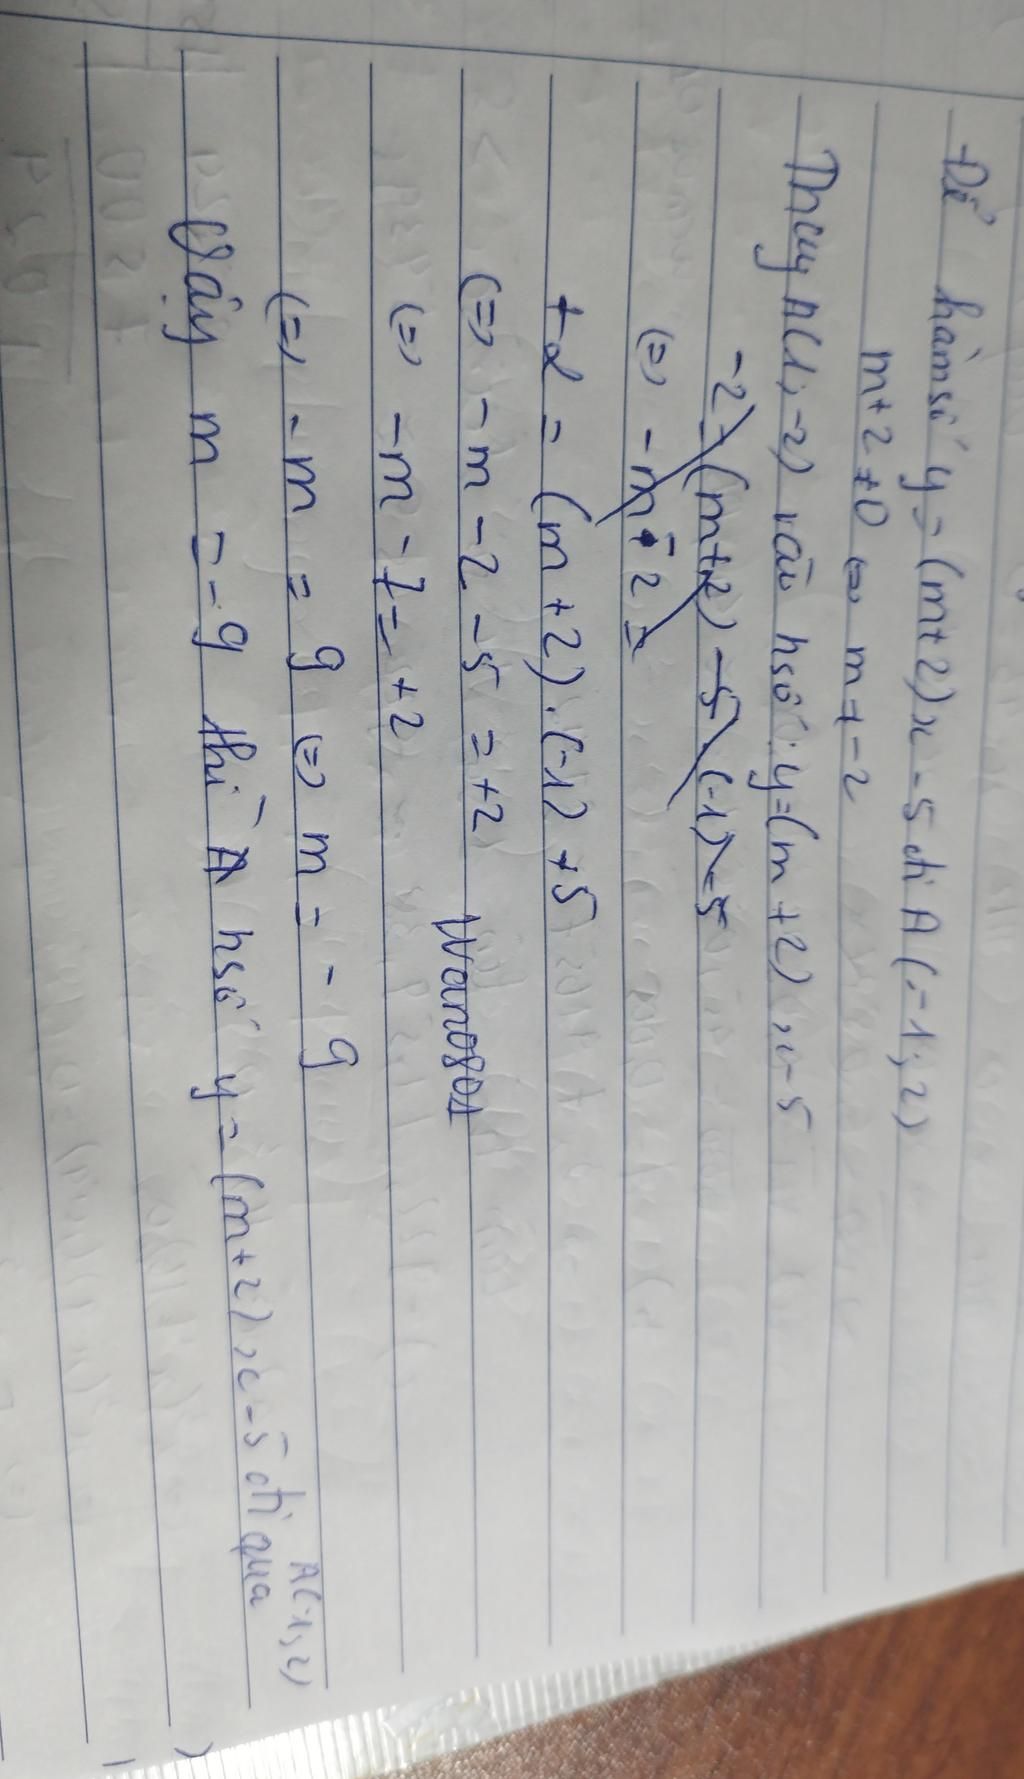 -Để hàm số y=(m+2)x-5 đi A(-1;2)
m+2≠0 ⇔ m≠-2
Thay A(1;-2) vào hsố: y=(m+2)x-5
-2=(m+2)-5(-1)-5
(=) -m-2=
+2=(m+2).(-1)+5
(=) -m-2-5=+2
(=) -m-7=+2
(=) -m=9 (=) m=-9
Vậy m=-9 thì A hsố y=(m+2)x-5 đi qua
A(-1;2)